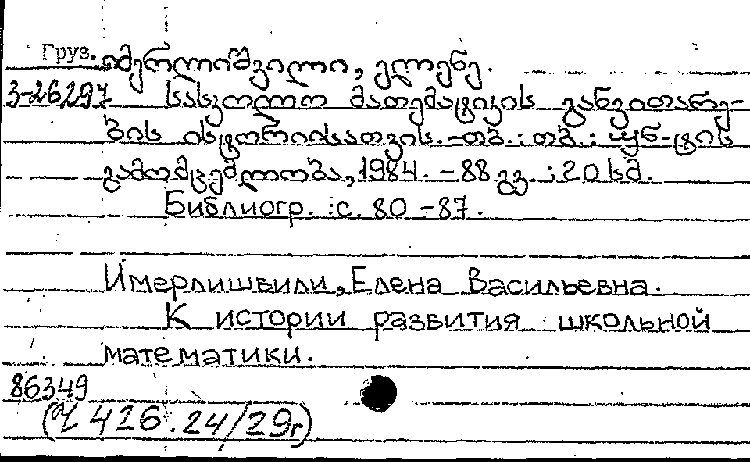 Груз. იმერლიშვილი, ელენე.
3-26297 სასკოლო მათემატიკის განვითარე-
ბის ისტორიისათვის. - თბ. : თბ. : უნ-ტის
გამომცემლობა, 1984. - 88 გვ. : 20 სმ.
Библиогр. : с. 80 - 87.
Имерлишвили, Елена Васильевна.
К истории развития школьной
математики.
86349
416.24/29г)